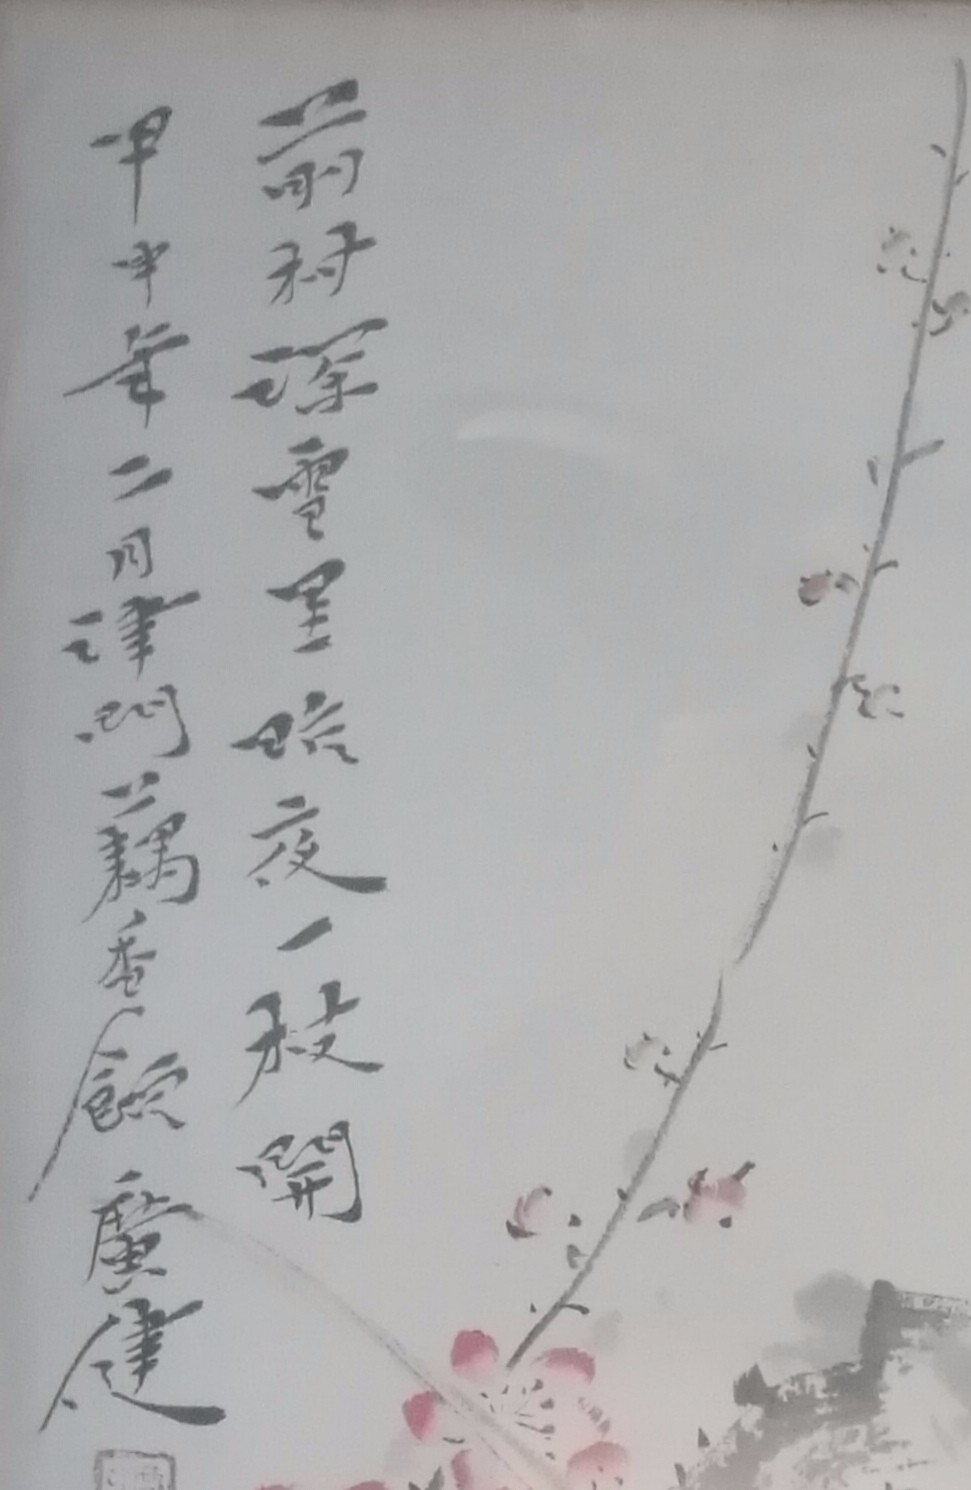 前村深雪里昨夜一枝開
甲申年二月津門藕香館廣健